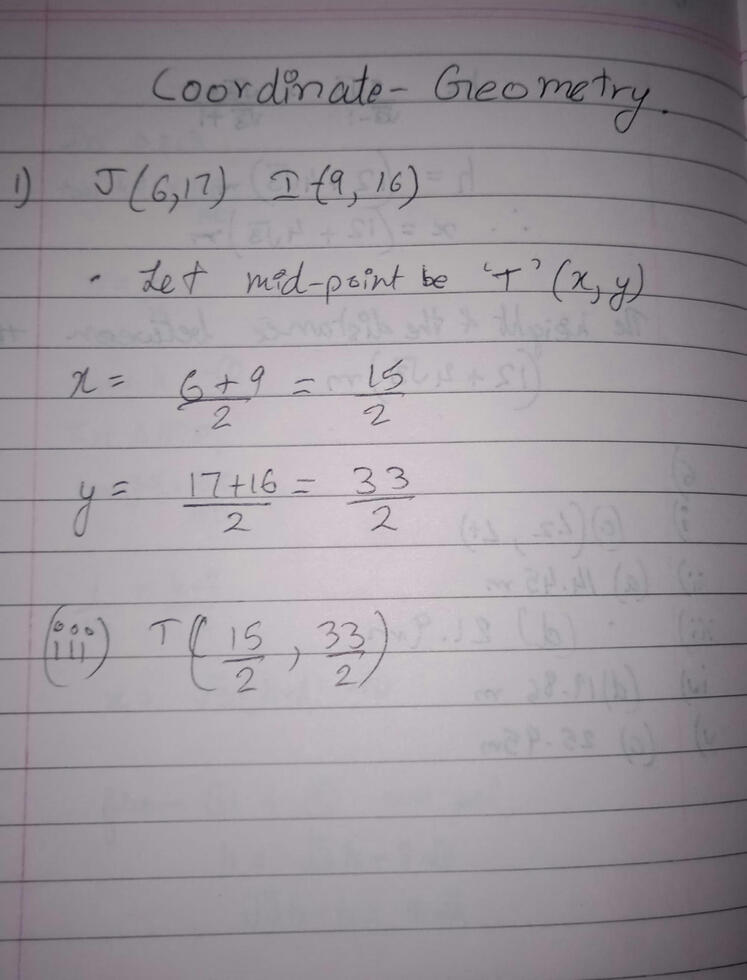 Coordinate- Geometry.
1) J(6,17) I(9, 16)
· Let mid-point be 'T' (x, y)
x = 6+9/2 = 15/2
y = 17+16/2 = 33/2
(iii) T(15/2, 33/2)